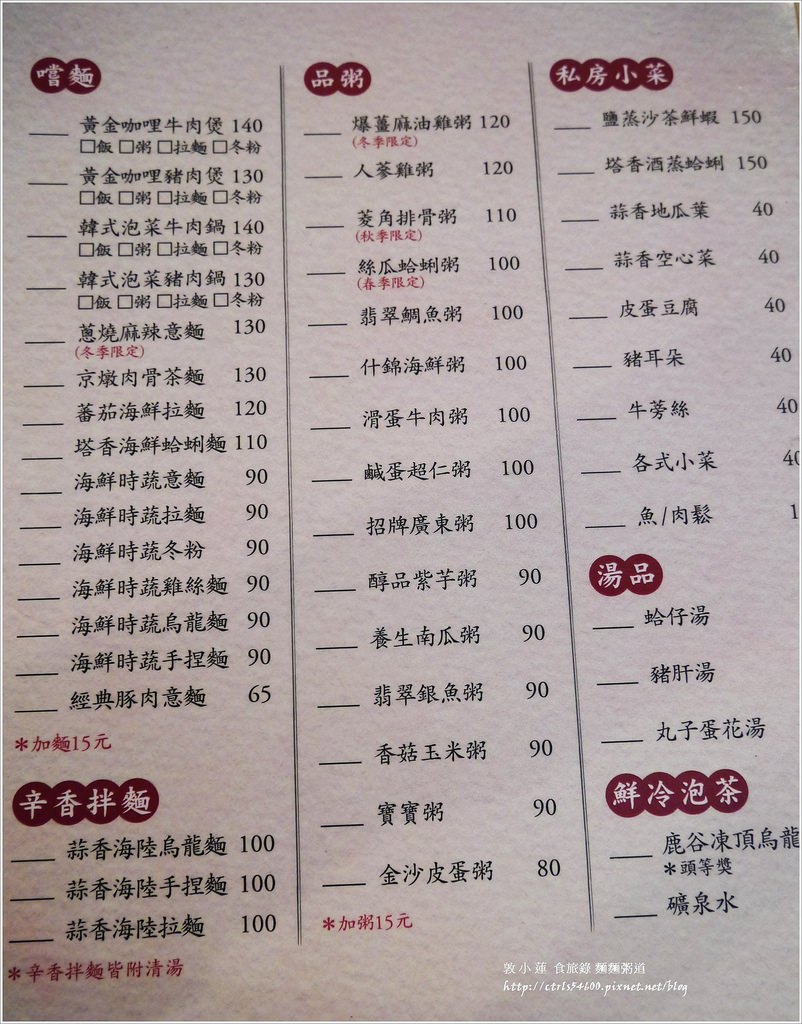 嚐麵
黃金咖哩牛肉煲 140
□飯 □粥 □拉麵 □冬粉
黃金咖哩豬肉煲 130
□飯 □粥 □拉麵 □冬粉
韓式泡菜牛肉鍋 140
□飯 □粥 □拉麵 □冬粉
韓式泡菜豬肉鍋 130
□飯 □粥 □拉麵 □冬粉
蔥燒麻辣意麵 130
(冬季限定)
京燉肉骨茶麵 130
蕃茄海鮮拉麵 120
塔香海鮮蛤蜊麵 110
海鮮時蔬意麵 90
海鮮時蔬拉麵 90
海鮮時蔬冬粉 90
海鮮時蔬雞絲麵 90
海鮮時蔬烏龍麵 90
海鮮時蔬手捏麵 90
經典豚肉意麵 65
*加麵15元
辛香拌麵
蒜香海陸烏龍麵 100
蒜香海陸手捏麵 100
蒜香海陸拉麵 100
*辛香拌麵皆附清湯
品粥
爆薑麻油雞粥 120
(冬季限定)
人蔘雞粥 120
菱角排骨粥 110
(秋季限定)
絲瓜蛤蜊粥 100
(春季限定)
翡翠鯛魚粥 100
什錦海鮮粥 100
滑蛋牛肉粥 100
鹹蛋超仁粥 100
招牌廣東粥 100
醇品紫芋粥 90
養生南瓜粥 90
翡翠銀魚粥 90
香菇玉米粥 90
寶寶粥 90
金沙皮蛋粥 80
*加粥15元
私房小菜
鹽蒸沙茶鮮蝦 150
塔香酒蒸蛤蜊 150
蒜香地瓜葉 40
蒜香空心菜 40
皮蛋豆腐 40
豬耳朵 40
牛蒡絲 40
各式小菜 40
魚/肉鬆 1
湯品
蛤仔湯
豬肝湯
丸子蛋花湯
鮮冷泡茶
鹿谷凍頂烏龍
*頭等獎
礦泉水
敦小蓮 食旅錄 麵麵粥道
http://ctrls54600.pixnet.net/blog